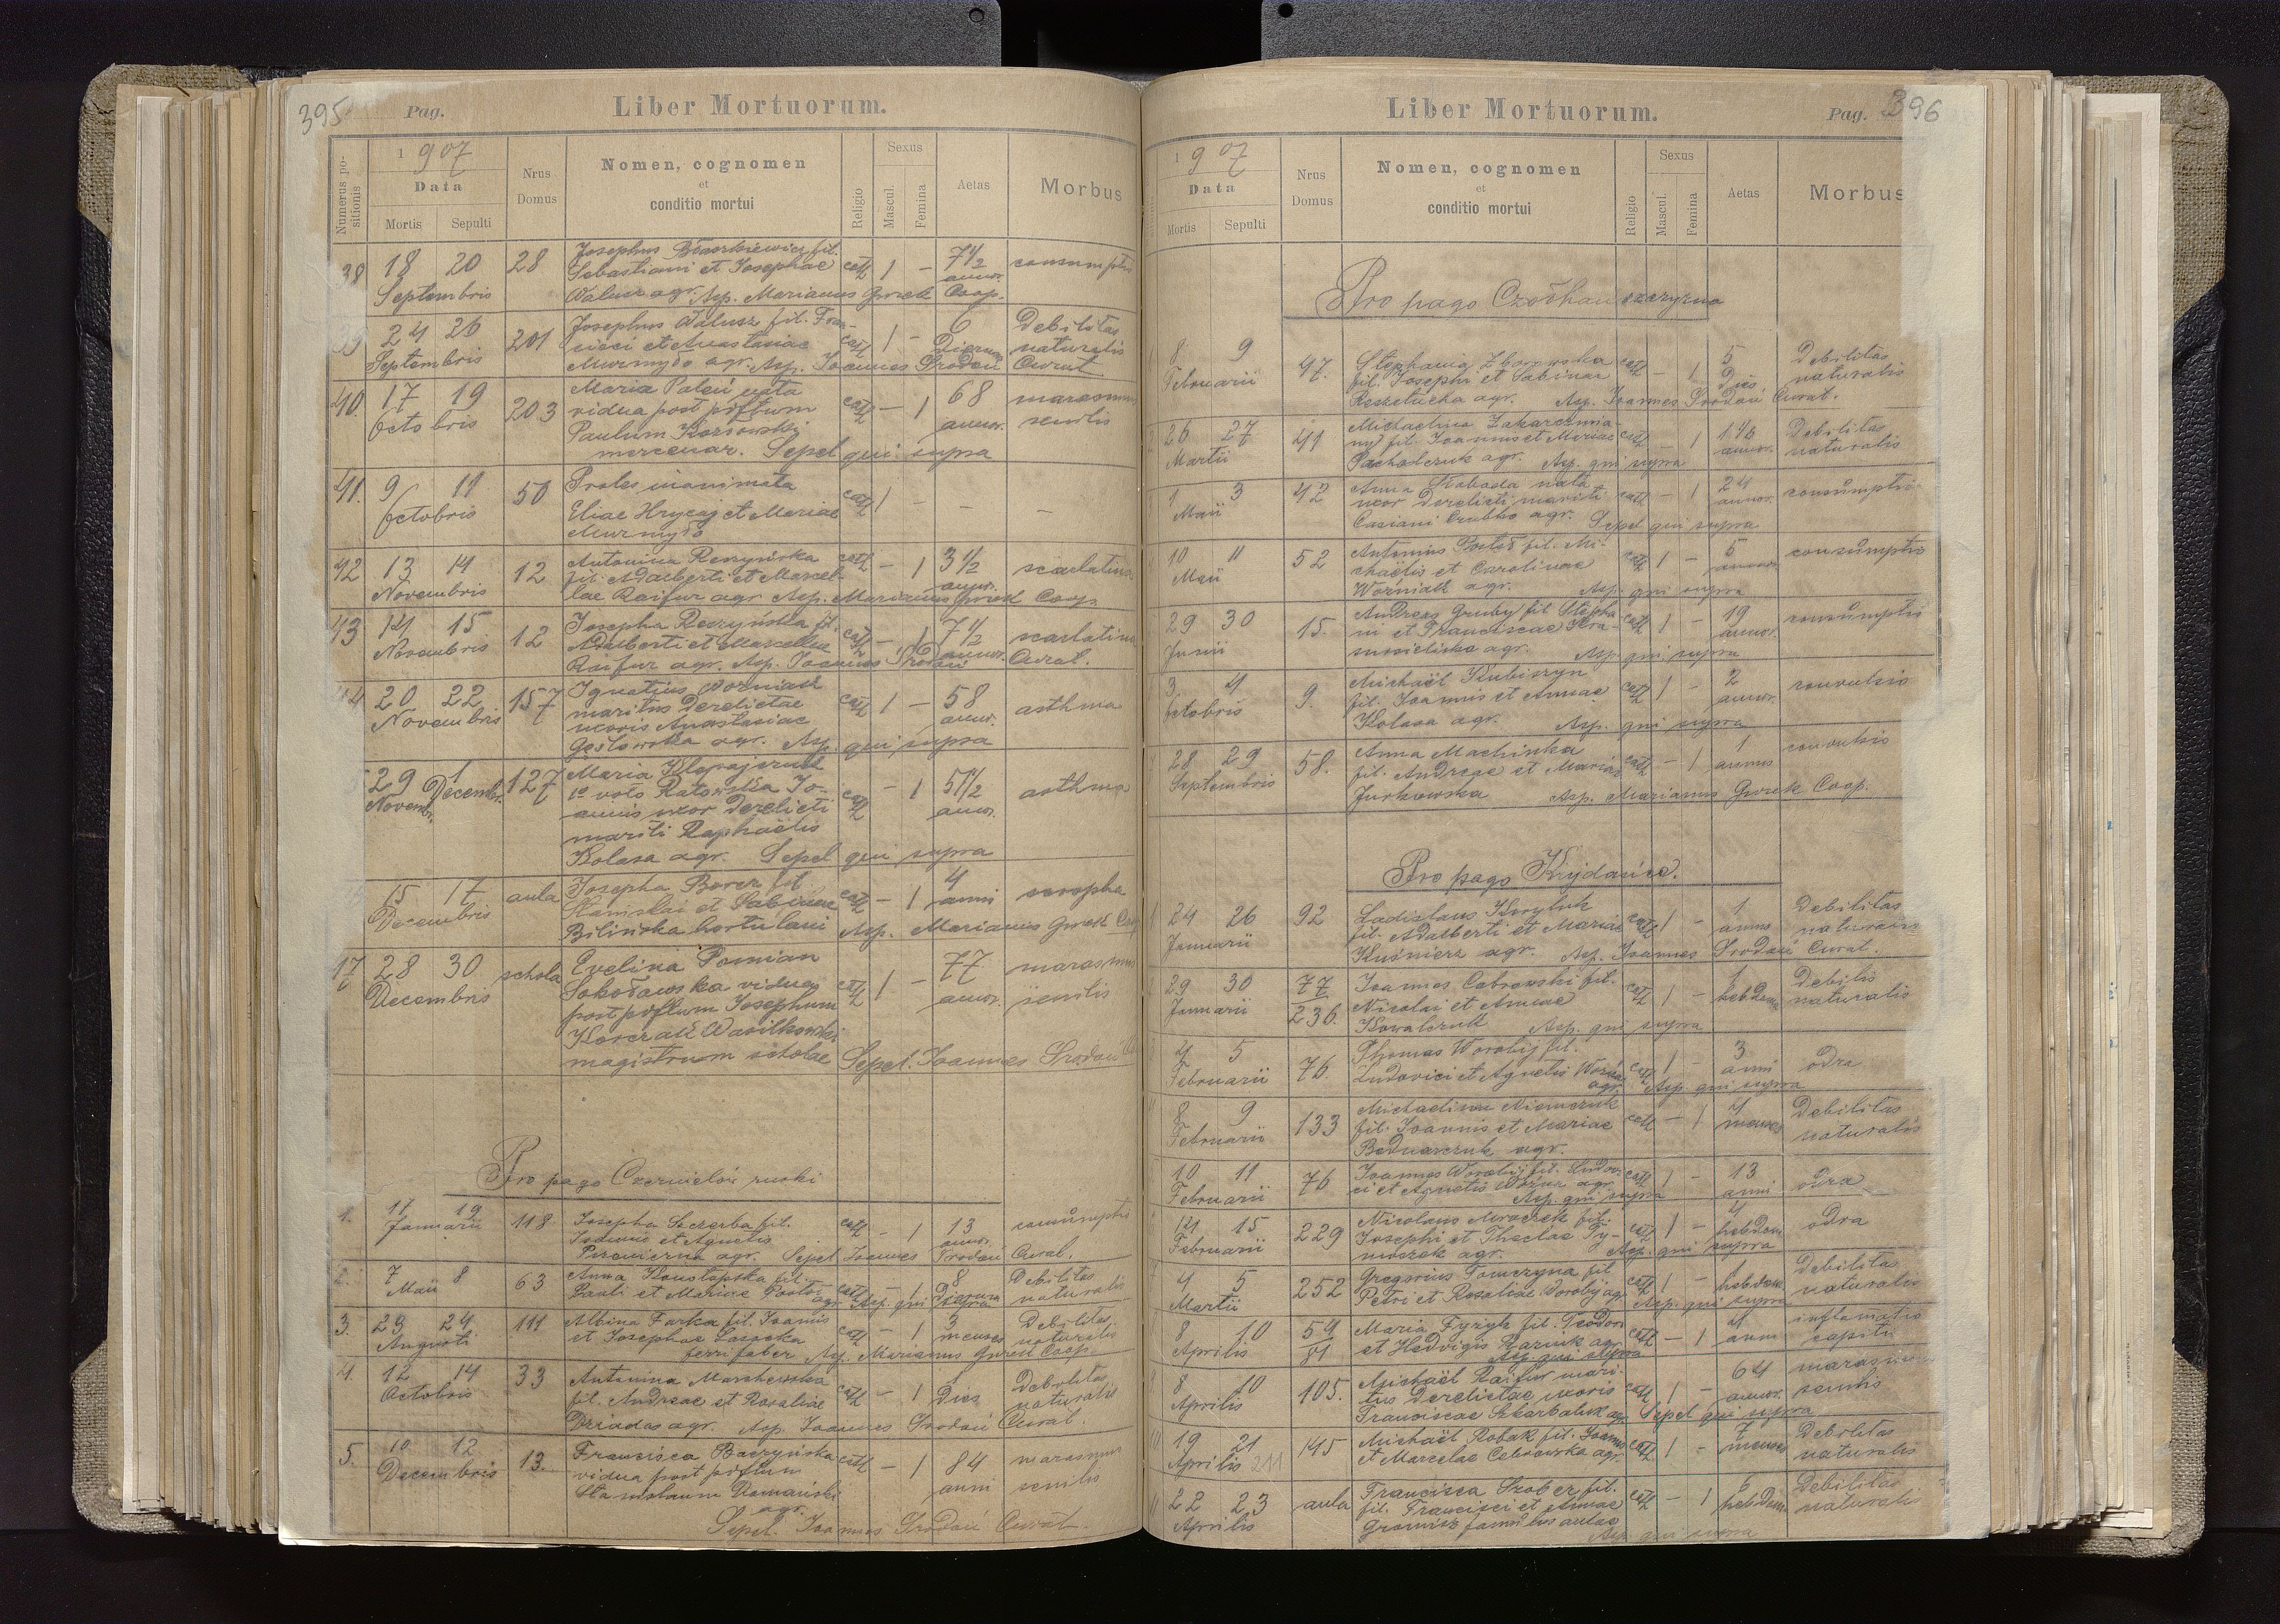 395 Pag. Liber Mortuorum.
Numerus positionis
1907
Data
Mortis Sepulti
Nrus Domus
Nomen, cognomen
et
conditio mortui
Religio
Sexus
Mascul. Femina
Aetas
Morbus
38 18 20 28 Josephus Błaszkiewicz fil.
Septembris Sebastiani et Josephae cath 1 - 7 1/2 annor. consumptio
Walusz agr. Asp. Marianus Gwrek Coop.
39 24 26 201 Josephus Walusz fil. Fran-
Septembris cisci et Anastasiae cath 1 - 6 Dierum Debilitas naturalis
Murmydo agr. Asp. Joannes Srodoń Curat.
40. 17 19 203 Maria Paleń nata
Octobris vidua post piftum cath - 1 68 annor. marasmus senilis
Paulum Korsowski
mercenar. Sepel qui supra
41. 9 11 50 Proles inanimata
Octobris Eliae Hrycaj et Mariae cath 1 - - -
Murmydo
42 13 14 12 Antonina Reszyńska cath - 1 3 1/2 annor. scarlatina
Novembris fil. Adalberti et Marcel-
lae Raifur agr. Asp. Marianus Gwrek Coop.
43 14 15 12 Josepha Reszyńska fil.
Novembris Adalberti et Marcellae cath - 1 7 1/2 annor. scarlatina
Raifur agr. Asp. Joannes Srodoń Curat.
44 20 22 157 Ignatius Wozniak
Novembris maritus Derelictae cath 1 - 58 annor. asthma
uxoris Anastasiae
Gęstowska agr. Asp. qui supra
29 Novembr. 1 Decembr. 127 Maria Klepajczuk
1o voto Ratowska Jo-
annis uxor Derelicti cath - 1 51 1/2 annor. asthma
mariti Raphaëlis
Kolasa agr. Sepel qui supra
15 17 aula Josepha Borcz fil
Decembris Stanislai et Sabinae cath - 1 4 anni scropha
Bilińska hortulani Asp. Marianus Gwrek Coop
17 28 30 schola Evelina Pomian
Decembris Sokołowska vidua cath 1 - 77 annor. marasmus senilis
post piftum Josephum
Korczak Wasilkowski
magistrum scholae Sepel. Joannes Srodoń
Pro pago Czernielów ruski
1. 17 19 118 Josepha Szczerba fil. cath - 1 13 annor. consumptio
Januarii et Agnetis
agr. Sepel Joannes Srodoń Curat.
2. 7 8 63 Anna fil. cath - 1 8 Dierum Debilitas naturalis
Maii Pauli et Mariae agr. Asp. qui supra
3. 23 24 111 Albina Farka fil. Joannis cath - 1 3 menses Debilitas naturalis
Augusti et Josephae
ferri faber Asp. Marianus Gwrek Coop.
4. 12 14 33 Antonina cath - 1 1 Dies Debilitas naturalis
Octobris fil. Andreae et Rosaliae
Dziadas agr. Asp. Joannes Srodoń Curat.
5. 10 12 13. Francisca Baczyńska cath - 1 84 anni marasmus senilis
Decembris vidua post piftum
Stanislaum Domański
agr.
Sepel. Joannes Srodoń Curat.
Liber Mortuorum. Pag. 396
1907
Data
Mortis Sepulti
Nrus Domus
Nomen, cognomen
et
conditio mortui
Religio
Sexus
Mascul. Femina
Aetas
Morbus
Pro pago
8 9 47. Stephania Zborowska cath - 1 5 Dies Debilitas naturalis
Februarii fil. Josephi et Sabinae
agr. Asp. Joannes Srodoń Curat.
26 27 41 Michaelina
Martii fil. Joannis et Mariae cath - 1 annor. Debilitas naturalis
Pacholczuk agr. Asp. qui supra
1 3 42 Anna Słoboda nata
Maii uxor Derelicti mariti cath - 1 24 annor. consumptio
Casiani agr. Sepel qui supra
10 11 52 Antonius fil. Mi-
Maii chaëlis et Carolinae cath 1 - 5 annor. consumptio
Wozniak agr. Asp. qui supra
29 30 15. Andreas Gruby fil Stepha-
Junii ni et Franciscae cath 1 - 19 annor. consumptio
agr. Asp. qui supra
3 4 9. Michaël Kubiszyn
Octobris fil. Joannis et Annae cath 1 - 2 annor. convulsio
Kolasa agr. Asp. qui supra
28 29 58. Anna Machinka
Septembris fil. Andreae et Mariae cath - 1 1 annus convulsio
Jurkowska Asp. Marianus Gwrek Coop.
Pro pago Krydańce.
24 26 92 Ladislaus Koryluk
Januarii fil. Adalberti et Mariae cath 1 - 1 annus Debilitas naturalis
Kuśnierz agr. Asp. Joannes Srodoń Curat.
29 30 77/236. Joannes Cebrowski fil.
Januarii Nicolai et Annae cath 1 - 1 hebdom. Debilis naturalis
Kowalczuk Asp. qui supra
4 5 76. Thomas Worobij fil. cath 1 - 3 anni odra
Februarii Ludovici et Agnetis agr. Asp. qui supra
8 9 133 Michaelina Niemczuk
Februarii fil. Joannis et Mariae cath - 1 4 menses Debilitas naturalis
Bednarczuk agr.
10 11 76 Joannes Worobij fil. Ludovi-
Februarii ci et Agnetis agr. cath 1 - 13 anni odra
Asp. qui supra
14 15 229 Nicolaus Mroczek fil. cath 1 - 4 hebdom odra
Februarii Josephi et Theclae Ty-
moszek agr. Asp. qui supra
4 5 252 Gregorius Tomczyna fil cath 1 - 1 hebdom Debilitas naturalis
Martii Petri et Rosaliae Worobij agr. Asp. qui supra
8 10 59/81 Maria Fyryk fil. Teodori cath - 1 4 anni inflamatio capitis
Aprilis et Hedvigis agr.
Asp. qui supra
8 10 105. Michaël Raifur mari-
Aprilis tus Derelictae uxoris cath 1 - 64 annor. marasmus senilis
Franciscae Szkarbaluk agr. Sepel qui supra
19 21 145 Michaël Robak fil. Joannis cath 1 - 7 menses Debilitas naturalis
Aprilis 211 et Marcelae Cebrowska agr.
22 23 aula Francisca Szober fil.
Aprilis fil. Francisci et Annae cath - 1 6 hebdom. Debilitas naturalis
famulus aulae
Asp. qui supra